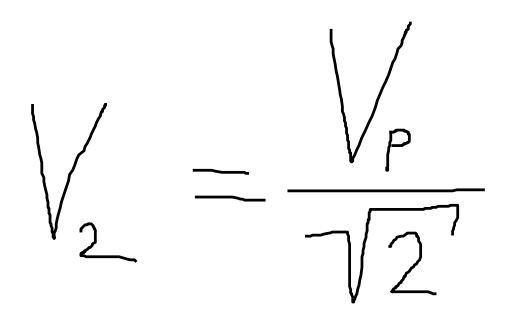 V₂ = V_P / √2